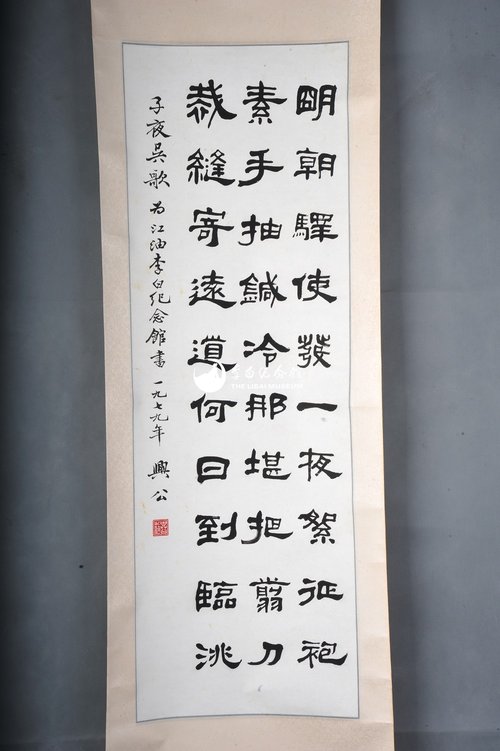 明朝驛使發一夜絮征袍
素手抽鍼冷那堪把翦刀
裁縫寄遠道何日到臨洮
子夜吴歌 为江油李白纪念館書 一九七九年 興公
李白纪念馆
THE LIBAI MUSEUM